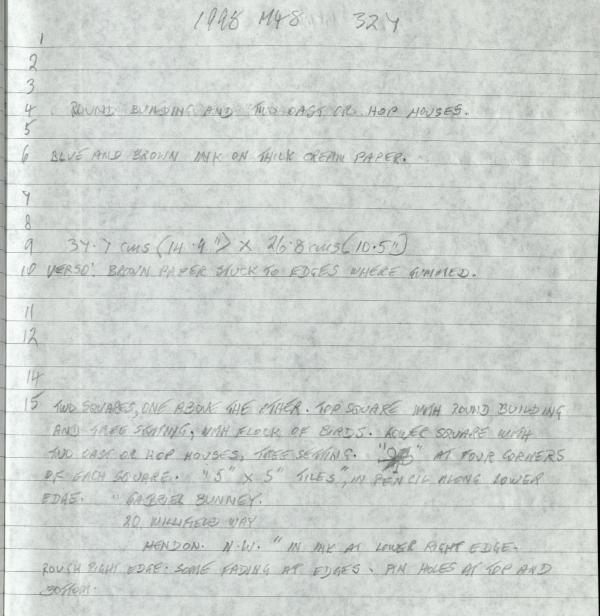 1998 M48 324
1
2
3
4 ROUND BUILDING AND TWO OAST OR HOP HOUSES.
5
6 BLUE AND BROWN INK ON THICK CREAM PAPER.
7
8
9 37.7 cms (14.9") X 26.8 cms (10.5")
10 VERSO: BROWN PAPER STUCK TO EDGES WHERE GUMMED.
11
12
14
15 TWO SQUARES, ONE ABOVE THE OTHER. TOP SQUARE WITH ROUND BUILDING
AND TREE SETTING, WITH FLOCK OF BIRDS. LOWER SQUARE WITH
TWO OAST OR HOP HOUSES, TREE SETTING. AT FOUR CORNERS
OF EACH SQUARE. "5" X 5" TILES", IN PENCIL ALONG LOWER
EDGE. " BUNNEY.
20 WAY
HENDON. N.W. " IN INK AT LOWER RIGHT EDGE.
ROUGH RIGHT EDGE. SOME FADING AT EDGES. PIN HOLES AT TOP AND
BOTTOM.